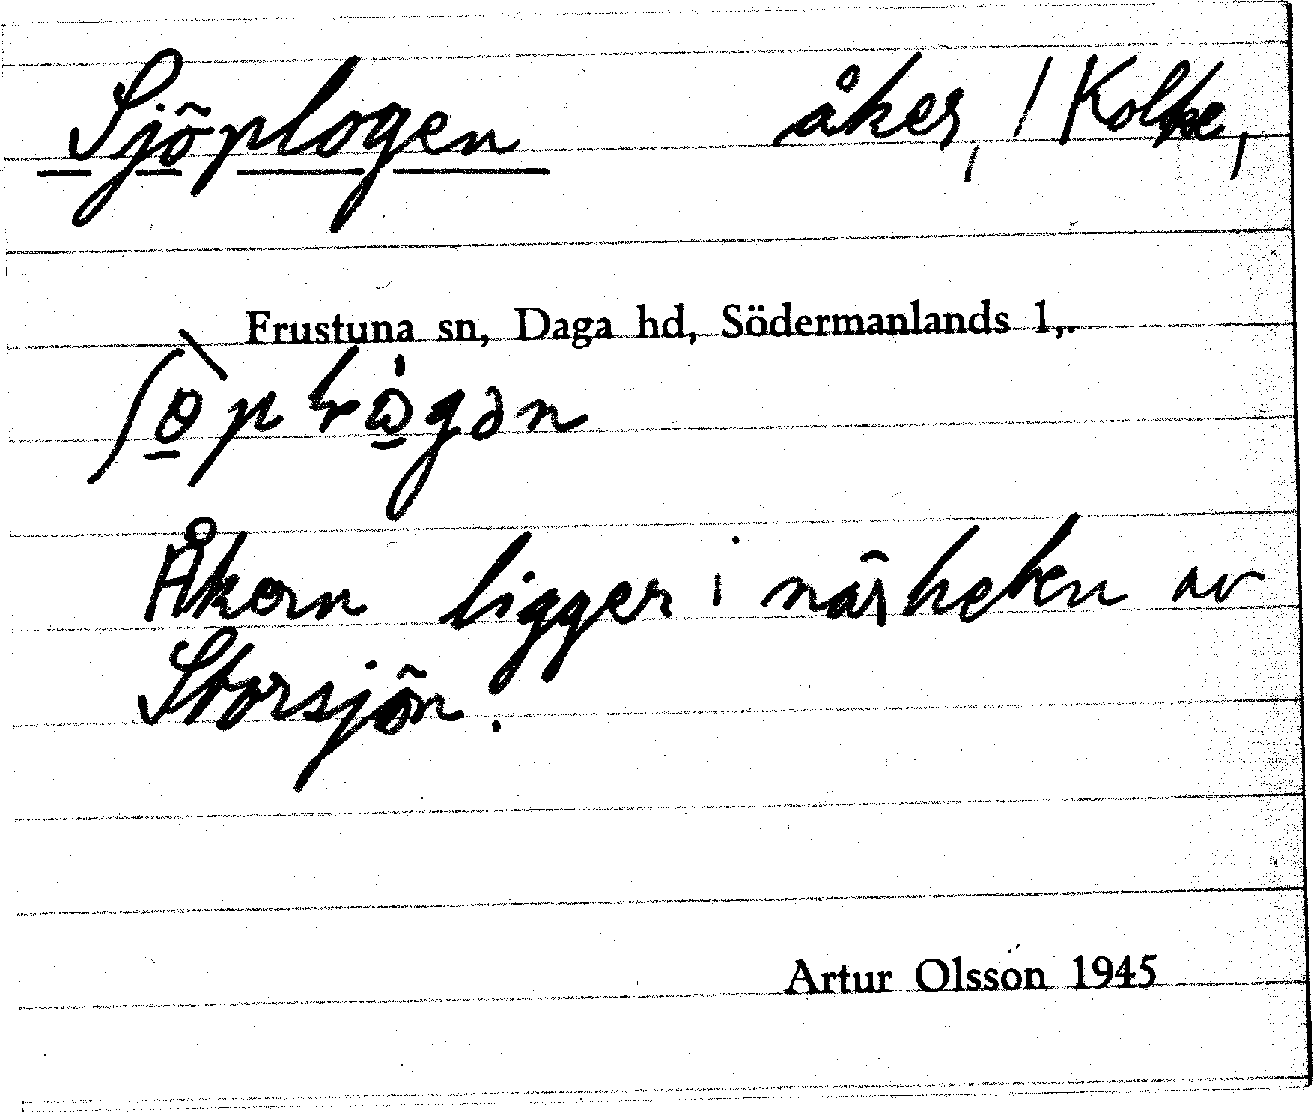 Sjöplogen åker, / Kolke,
Frustuna sn, Daga hd, Södermanlands l,.
Åkern ligger i närheten av
Storsjön.
Artur Olsson 1945